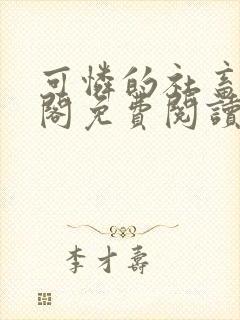 可憐的社畜
閣免費閱讀
李才壽